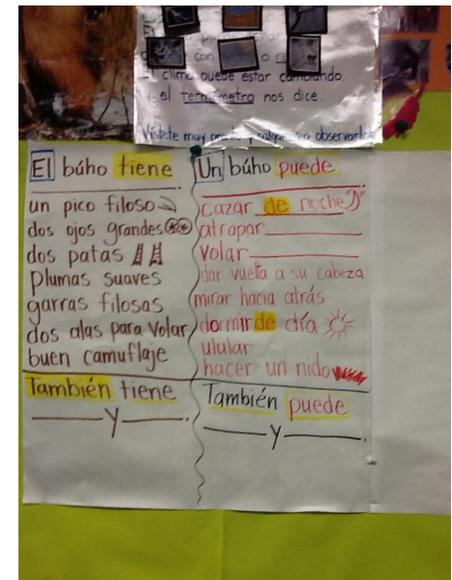 con o
El clima puede estar cambiando.
el termómetro nos dice.
Vístete muy y a observarlo
El búho tiene
_______________.
un pico filoso
dos ojos grandes
dos patas
Plumas suaves
garras filosas
dos alas para volar
buen camuflaje
También tiene
_____y_____.
Un búho puede
_______________.
cazar de noche
atrapar__________
volar__________
dar vuelta a su cabeza
mirar hacia atrás
dormir de día
ulular
hacer un nido
También puede
_____y_____.